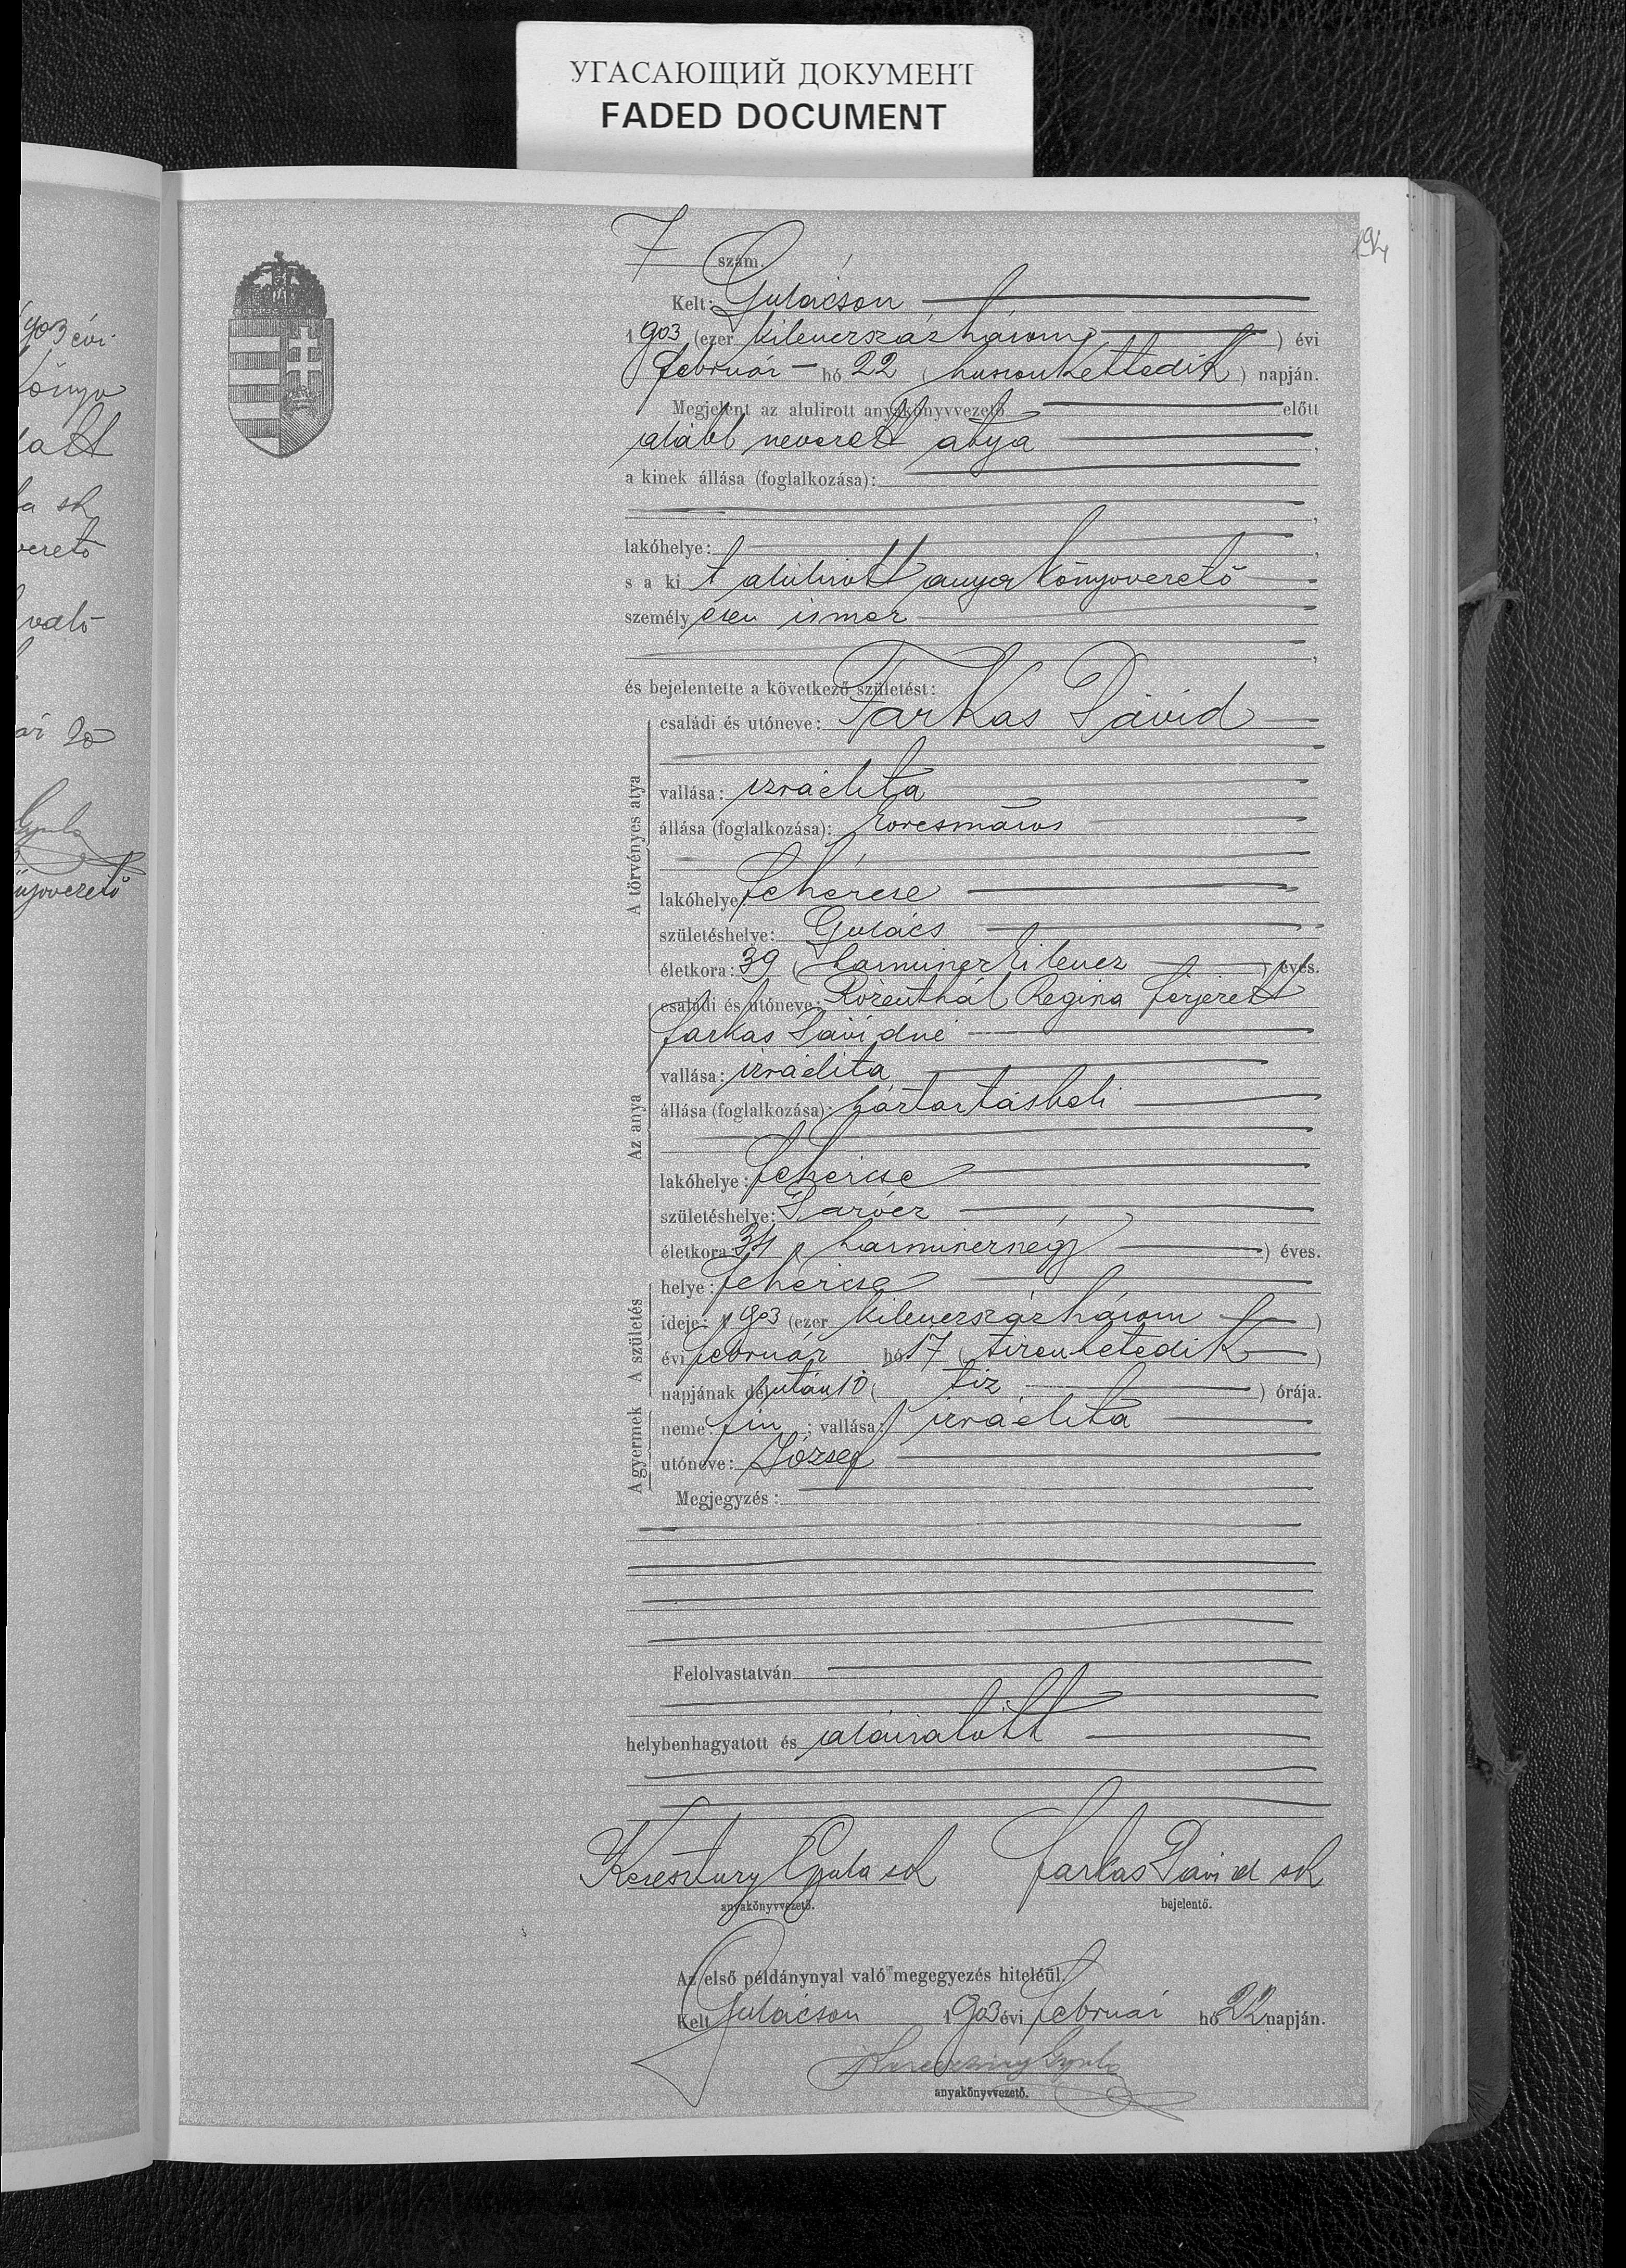 УГАСАЮЩИЙ ДОКУМЕНТ
FADED DOCUMENT
194
7 szám.
Kelt: Gulácson
1903 (ezer kilenczszázhárom) évi
február hó 22 (huszonkettedik) napján.
Megjelent az alulirott anyakönyvvezető előtt
alább nevezett atya,
a kinek állása (foglalkozása):
lakóhelye:
s a kit alulirott anyakönyvvezető
személyesen ismer
és bejelentette a következő születést:
A törvényes atya
családi és utóneve: Farkas Dávid
vallása: izraelita
állása (foglalkozása): korcsmáros
lakóhelye: Fehércse
születéshelye: Gulács
életkora: 39 (harminczkilencz) éves.
Az anya
családi és utóneve: Rozenthál Regina férjezett
Farkas Dávidné
vallása: izraelita
állása (foglalkozása): háztartásbeli
lakóhelye: Fehércse
születéshelye:
életkora: 34 (harmincznégy) éves.
A születés
helye: Fehércse
ideje: 1903 (ezer kilenczszázhárom)
évi február hó 17 (tizenhetedik)
napjának délután 10 (tiz) órája.
A gyermek
neme: fiu; vallása: izraelita
utóneve: József
Megjegyzés:
Felolvastatván
helybenhagyatott és aláiratott
Keresztury Gyula sk Farkas Dávid sk
anyakönyvvezető. bejelentő.
Az első példánynyal való megegyezés hiteléül.
Kelt Gulácson 1903 évi február hó 22 napján.
Keresztury Gyula
anyakönyvvezető.
903 évi
könyv
vezető
való
Gyula